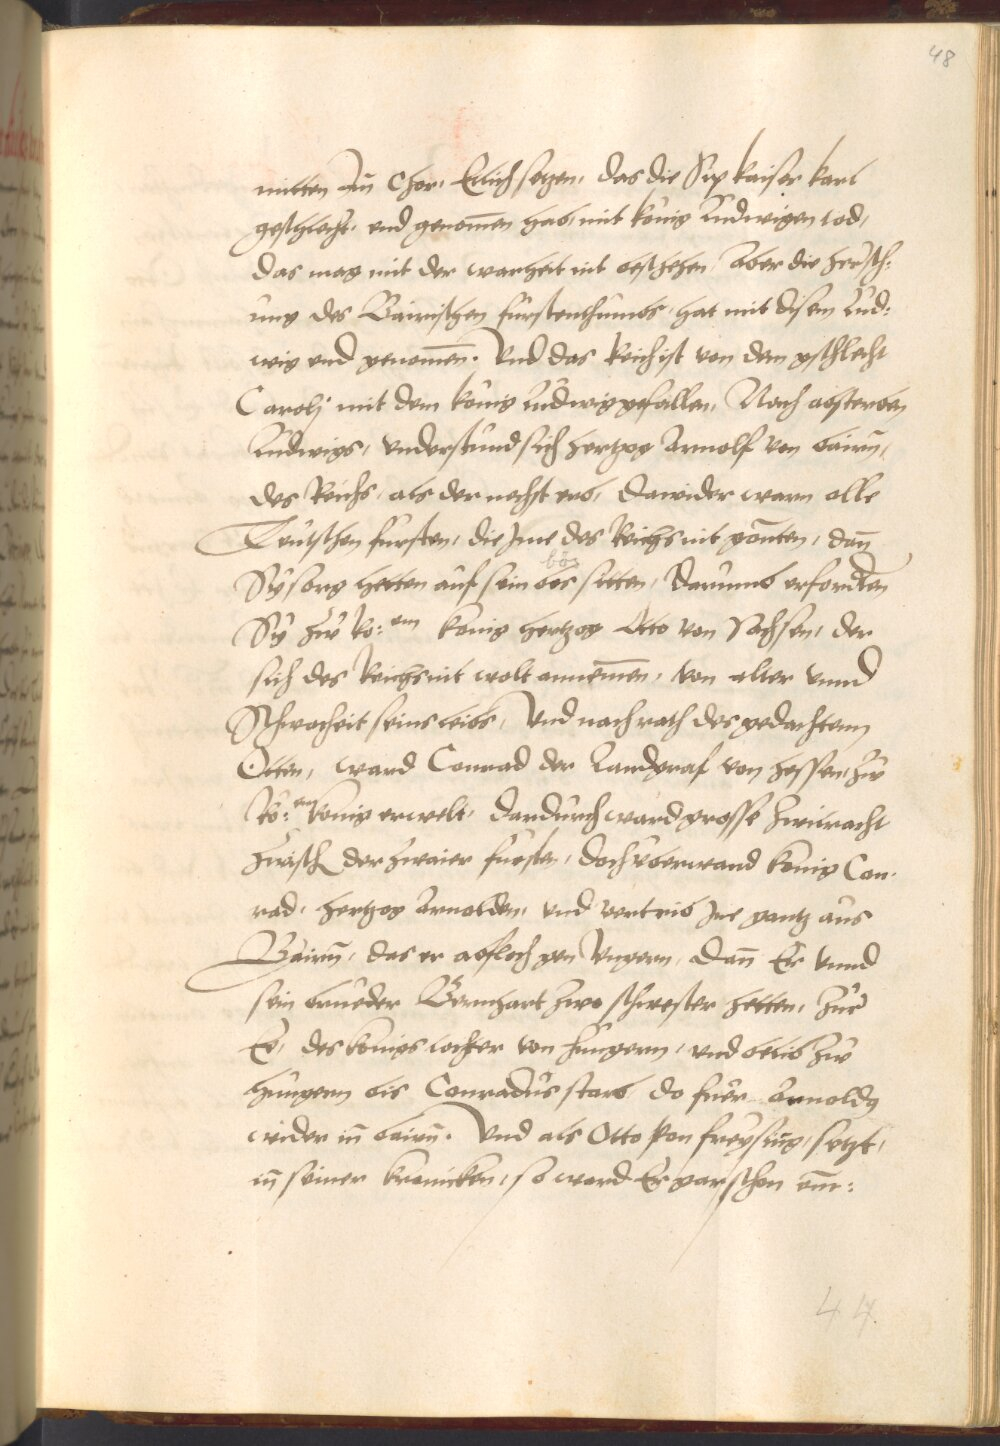 48
mitten Im Chor. Etlich setzen, das die Sip kaiser karl
geschlecht, end genomen hab, mit könig Ludwigen tod,
das mag mit der warheit nit beschehen, Aber die hersch:
ung des Bairischen fürstenthumbs, hat mit disem Lud:
wig end genomen. Vnd das Reich ist von dem gschlecht
Carolj mit dem könig Ludwig gefallen, Nach absterben
Ludwigs, vnderstund sich hertzog Arnolf von bairn,
des Reichs, als der nechst erb, Dawider warn alle
Teutschen fürsten, die Jme des Reichs nit gonten, dan
bös
Sÿ sorg hetten auf sein bös sitten, Darumb erfordten
Sÿ zw Rö: em König hertzog Otto von Sachsen, der
sich des Reichs nit wolt annemen, von alter vnnd
Schwacheit seins leibs, Vnd nach rath des gedachten
Otten, ward Conrad der Landgraf von Hessen, zw
Rö: em König erwelt, Dardurch ward grosse zwitracht
zwisch der zwaier fürsten, Doch vberwand König Con.
rad, hertzog Arnolden, vnd vertrib Jne gantz aus
Bairn, das er abfloch gen Vngern, Dan Er vnnd
sein brueder Bernhart zwo schwester hetten, zur
Ee, des königs tochter von hungern, vnd belib zw
hungern bis Conradus starb, do fuer Arnoldg
wider in bairn. Vnd als Otto von freysing, setzt,
in seiner kronicken, so ward Er gar schon em:
47